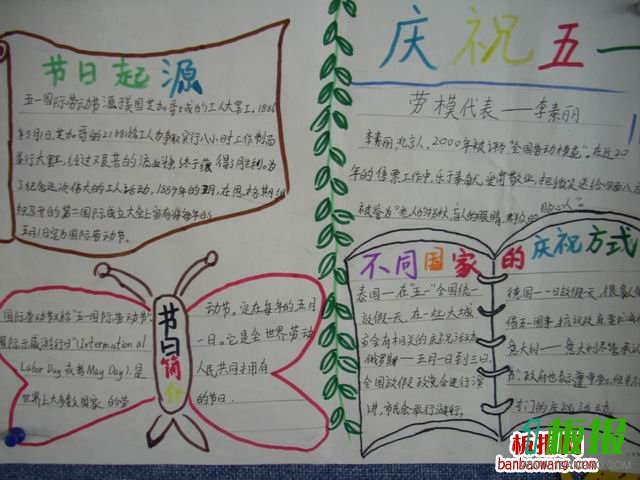 节日起源
五一国际劳动节源于美国芝加哥城的工人大罢工。1886
年5月1日,芝加哥的21.6万名工人为争取实行八小时工作制而
举行大罢工,经过艰苦的流血,终于获得了胜利。为
了纪念这次伟大的工人运动,1889年的7月,在恩格斯组
织召开的第二国际成立大会上宣布将每年的
五月1日定为国际劳动节。
节日简介
国际劳动节又称"五一国际劳动节"
国际示威游行日"(International
Labor Day 或者May Day),是
世界上大多数国家的劳
动节。定在每年的五月
一日。它是全世界劳动
人民共同拥有
的节日.
庆祝五一
劳模代表——李素丽
李素丽,北京人,2000年被评为"全国劳动模范"。在近20
年的售票工作中,乐于奉献,爱岗敬业,把微笑送给四面八方
被誉为"老人的拐杖,盲人的眼睛,群众的
贴心人"。
不同国家的庆祝方式
泰国—在"五一"全国统一
放假一天,在一些大城
市会有相关的庆祝活动
俄罗斯—五月一日到三日,
全国放假,政党会进行演
讲,市民会举行游行。
德国——日放假一天,很多人会
借五一闹事,抗议政府
意大利——意大利尽管承认
节,政府也表示
专门的庆祝活动
板报
www.banbaowang.com